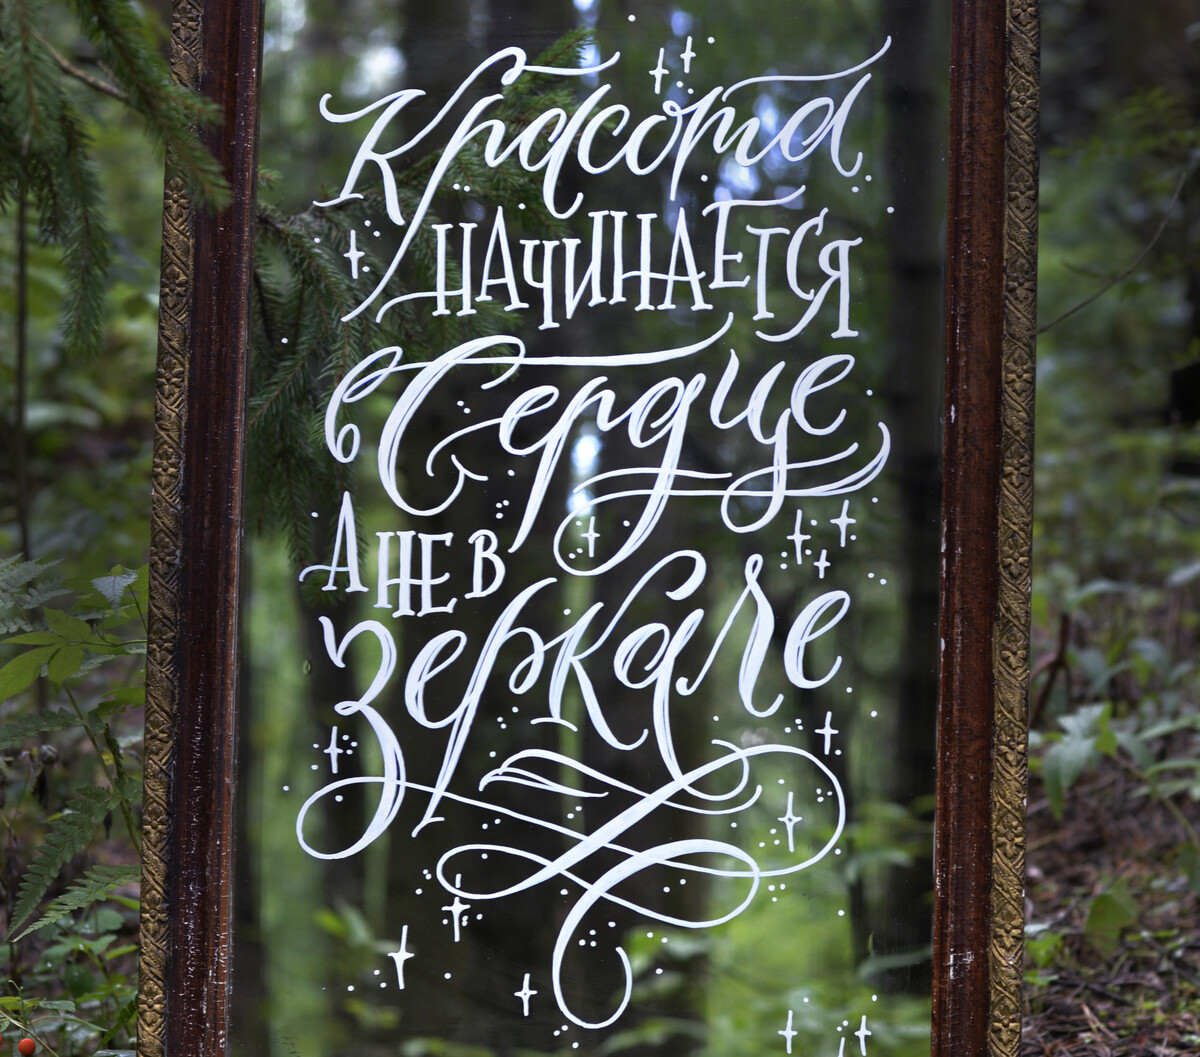 Красота
НАЧИНАЕТСЯ
в Сердце
А НЕ В
Зеркале